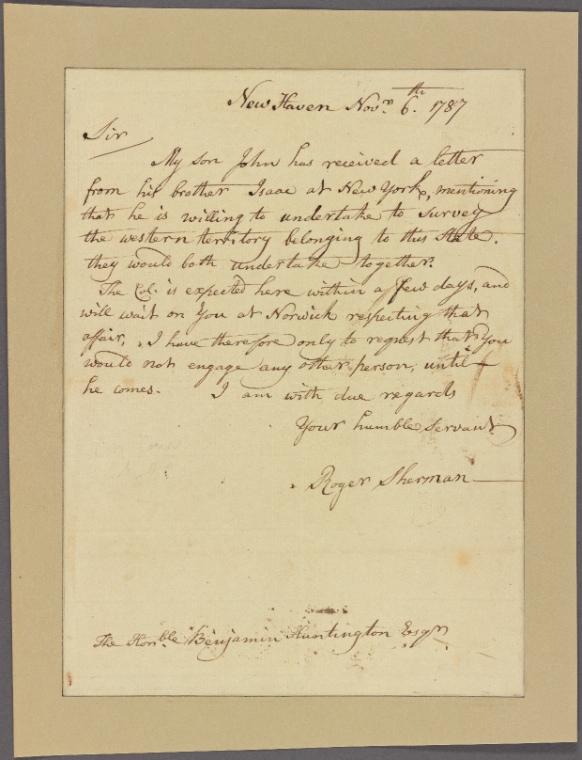 New Haven Novr. 6.th 1787
Sir
My son John has received a letter
from his brother Isaac at New York, mentioning
that he is willing to undertake to Survey
the western territory belonging to this State.
they would both undertake together.
The Col. is expected here within a few days, and
will wait on You at Norwich respecting that
affair, I have therefore only to request that You
would not engage any other person, until
he comes. I am with due regards
Your humble Servant
Roger Sherman
The Honble. Benjamin Huntington Esqr.